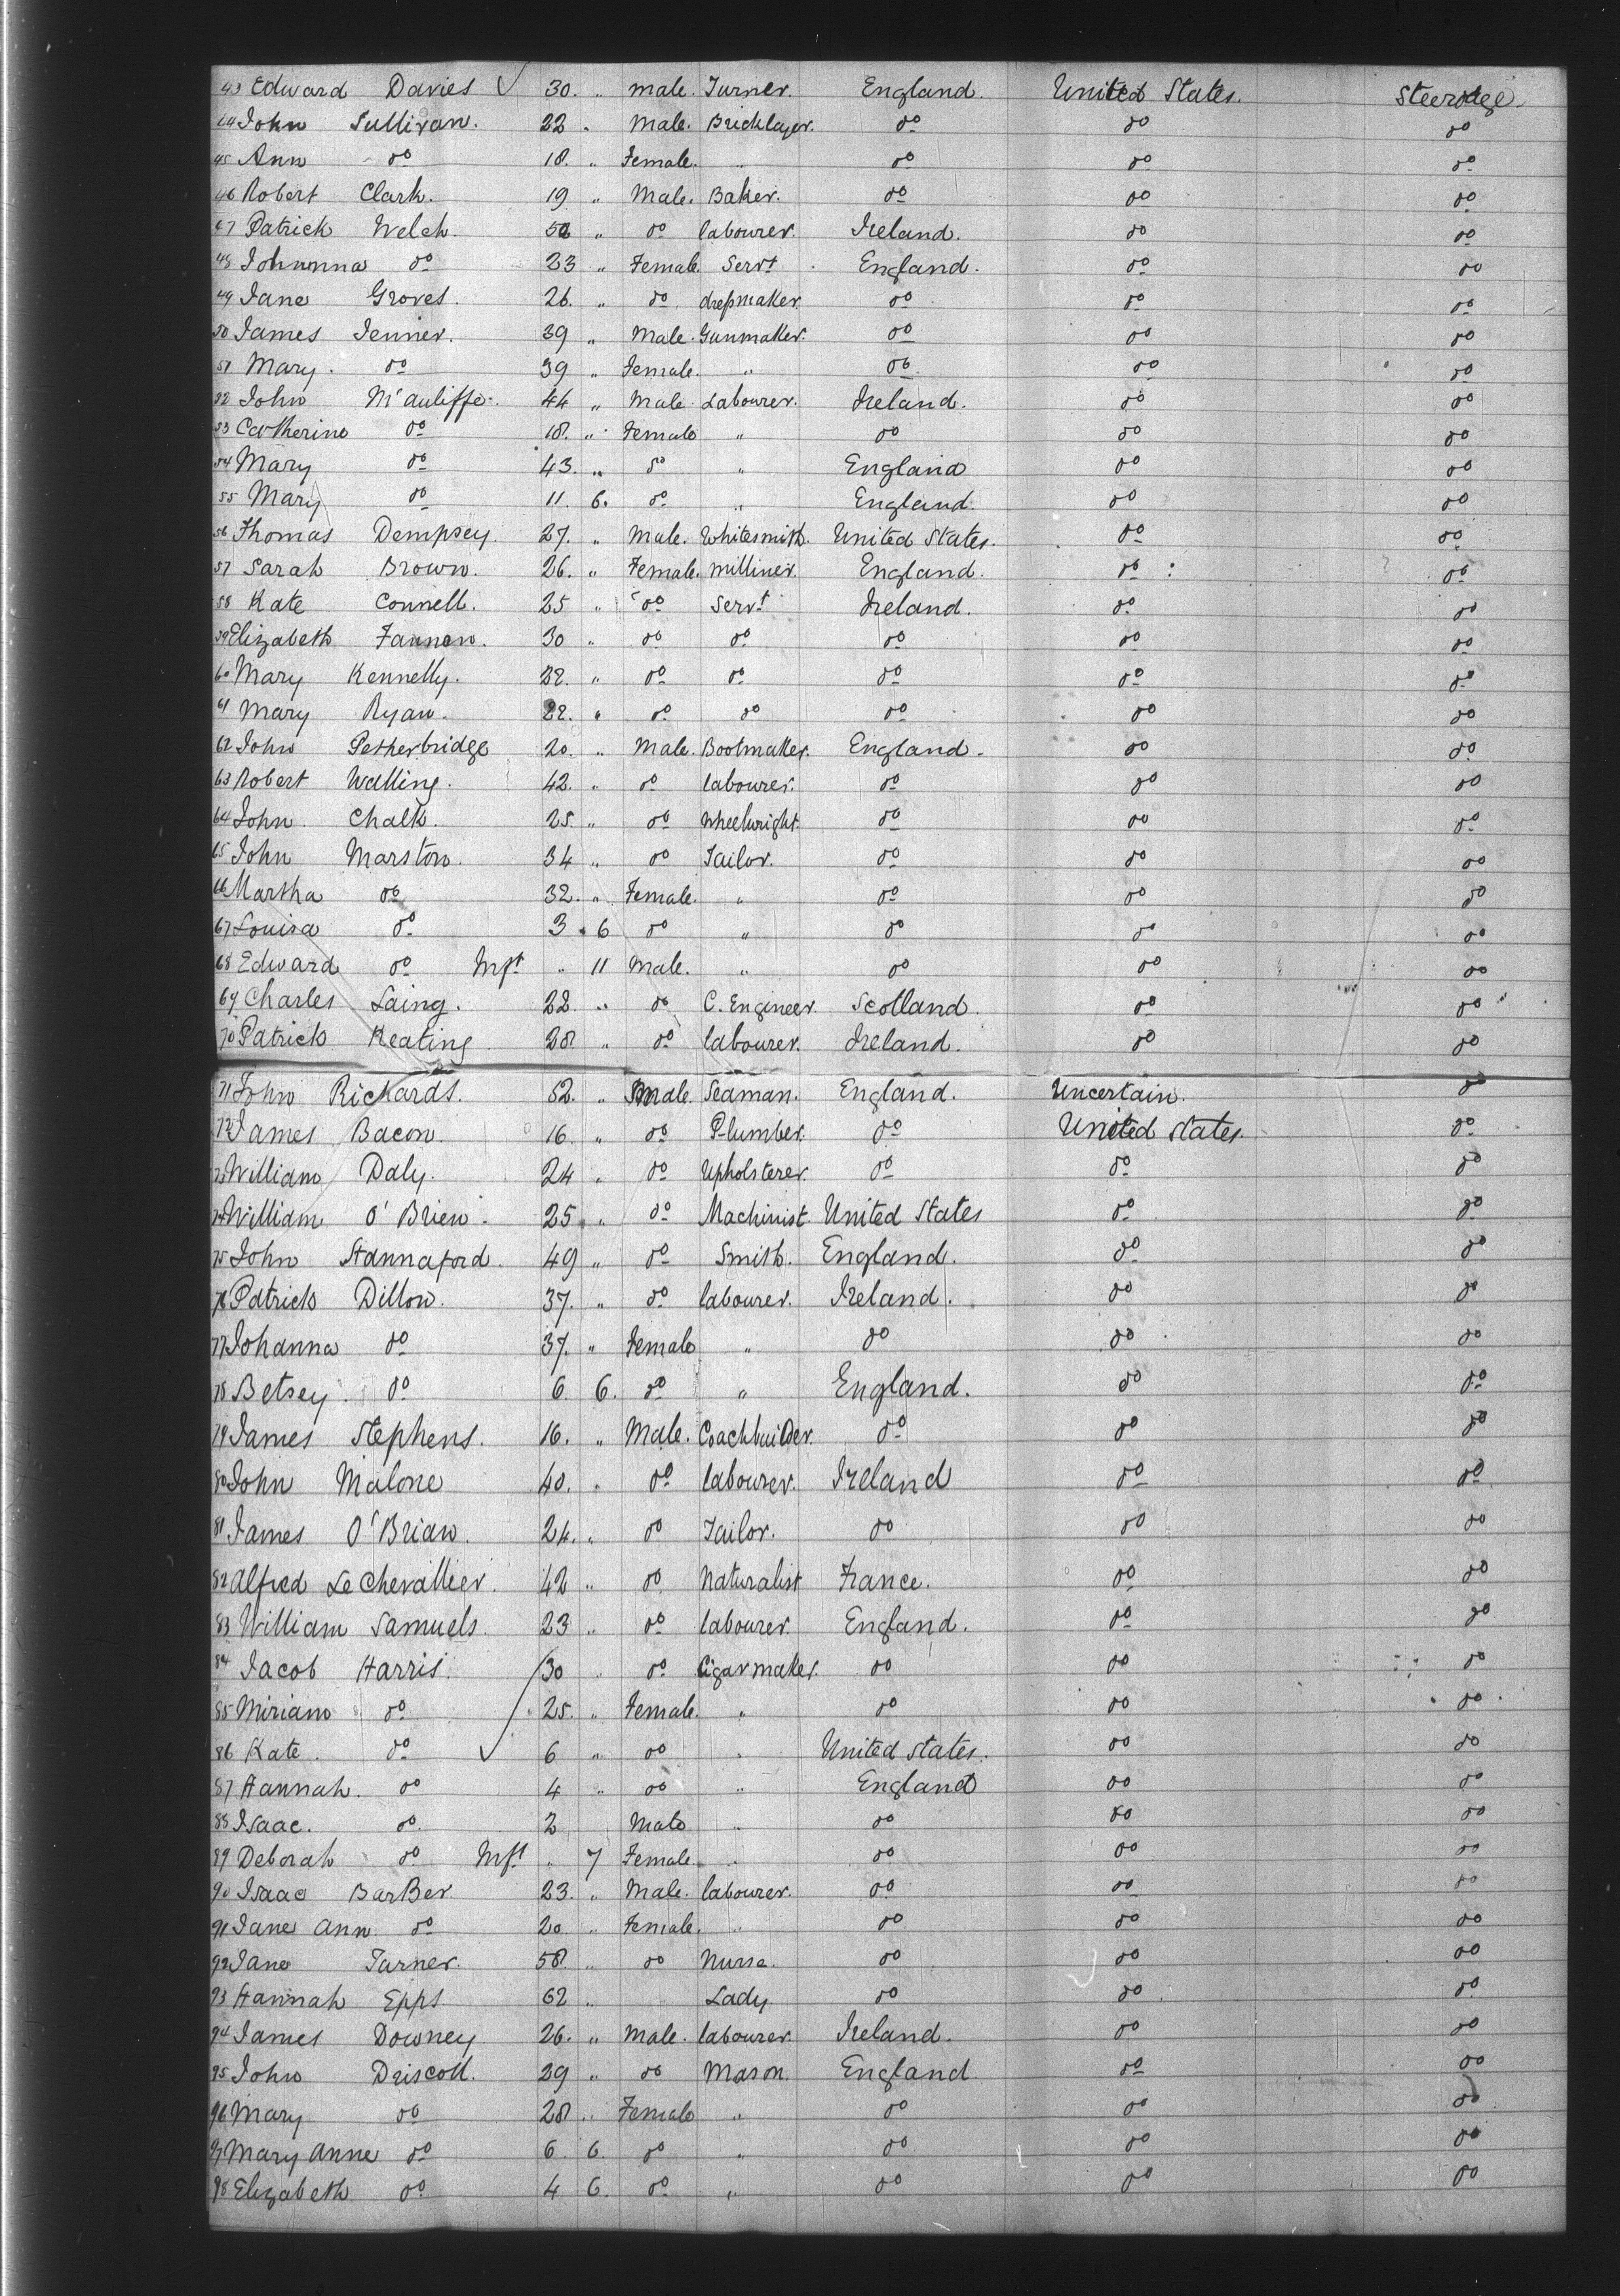 43 Edward Davies ✓ 30. " male. Turner. England. United States. Steerage.
44 John Sullivan. 22 " Male. Bricklayer. do do do
45 Ann do 18. " Female. " do do do
46 Robert Clark. 19 " Male. Baker. do do do
47 Patrick Welch. " do labourer. Ireland. do do
48 Johannna do 23 " Female. Servt. England. do do
49 Jane Groves. 26. " do dressmaker. do do do
50 James Jenner. 39 " Male. Gunmaker. do do do
51 Mary. do 39 " Female. " do do do
52 John McAuliffe. 44 " Male. Labourer. Ireland. do do
53 Catherine do 18. " Female " do do do
54 Mary do 43. " do " England do do
55 Mary do 11. 6. do " England. do do
56 Thomas Dempsey. 27. " Male. Whitesmith. United States. do do
57 Sarah Brown. 26. " Female. milliner. England. do do
58 Kate Connell. 25 " do Servt Ireland. do do
59 Elizabeth Fannen. 30 " do do do do do
60 Mary Kennelly. 22. " do do do do do
61 Mary Ryan. 22. " do do do do do
62 John Petherbridge 20. " Male. Bootmaker. England. do do
63 Robert Walling. 42. " do labourer. do do do
64 John Chalk. 25. " do Wheelwright. do do do
65 John Marston. 34 " do Tailor. do do do
66 Martha do 32. " Female. " do do do
67 Louisa do 3 . 6 do " do do do
68 Edward do Inft " 11 Male. " do do do
69 Charles Laing. 22. " do C. Engineer. Scotland. do do
70 Patrick Keating. 28 " do labourer. Ireland. do do
71 John Richards. 52. " male. Seaman. England. Uncertain. do
72 James Bacon. 16. " do Plumber. do United States. do
73 William Daly. 24 " do Upholsterer. do do do
74 William O'Brien. 25 " do Machinist. United States do do
75 John Stannaford. 49 " do Smith. England. do do
76 Patrick Dillon. 37. " do labourer. Ireland. do do
77 Johanna do 37. " Female " do do do
78 Betsey. do 6. 6. do " England. do do
79 James Stephens. 16. " Male. Coachbuilder. do do do
80 John Malone 40. " do labourer. Ireland do do
81 James O'Brian. 24. " do Tailor. do do do
82 Alfred Le Chevallier. 42 " do Naturalist France. do do
83 William Samuels. 23 " do labourer. England. do do
84 Jacob Harris. 30 " do Cigarmaker. do do do
85 Miriam do 25. " Female. " do do do
86 Kate. do ✓ 6 " do " United States. do do
87 Hannah. do 4 " do " England do do
88 Isaac. do 2 Male " do do do
89 Deborah do Inft " 7 Female. " do do do
90 Isaac BarBer 23. " Male. labourer. do do do
91 Jane Ann do 20 " Female. " do do do
92 Jane Turner. 58. " do Nurse. do do do
93 Hannah Epps 62 " Lady. do do do
94 James Downey 26. " Male. labourer. Ireland. do do
95 John Driscoll. 29 " do Mason. England do do
96 Mary do 28 " Female " do do do
97 Mary Anne do 6 6. do " do do do
98 Elizabeth do 4 6. do " do do do